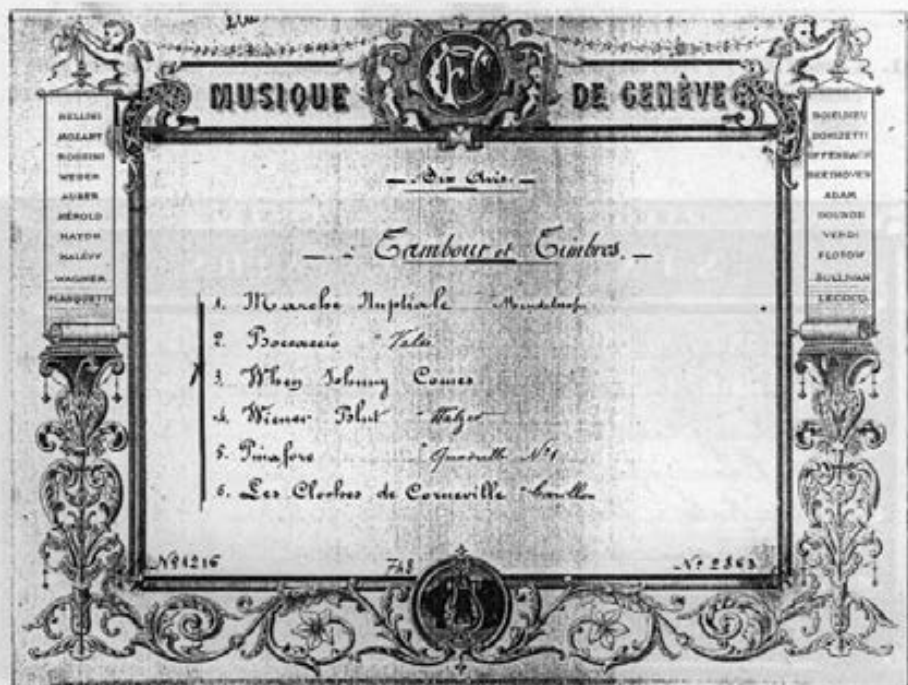 MUSIQUE DE GENÈVE
BELLINI
MOZART
ROSSINI
WEBER
AUBER
HÉROLD
HAYDN
HALÉVY
WAGNER
PLANQUETTE
BOIELDIEU
DONIZETTI
OFFENBACH
BEETHOVEN
ADAM
GOUNOD
VERDI
FLOTOW
SULLIVAN
LECOCQ
Airs.
Tambour et Timbres.
1. Marche Nuptiale
2. Boccaccio Valse
3. When Johnny Comes
4. Wiener Blut Walzer
5. Pinafore Quadrille Nº1
6. Les Cloches de Corneville Carillon
Nº 1216
Nº 2863